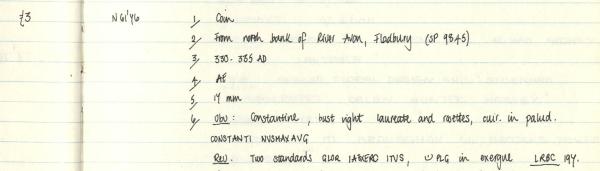 23 NGI'46 1, Coin
2, From north bank of River Avon, Fladbury (SP 9845)
3, 330-335 AD
4, AE
5, 17 mm
6, Obv: Constantine, bust right laureate and rosettes, cuir. in palud.
CONSTANTI NVSMAXAVG
Rev. Two standards GLOR IAEXERC ITVS, PLG in exergue LRBC 194.